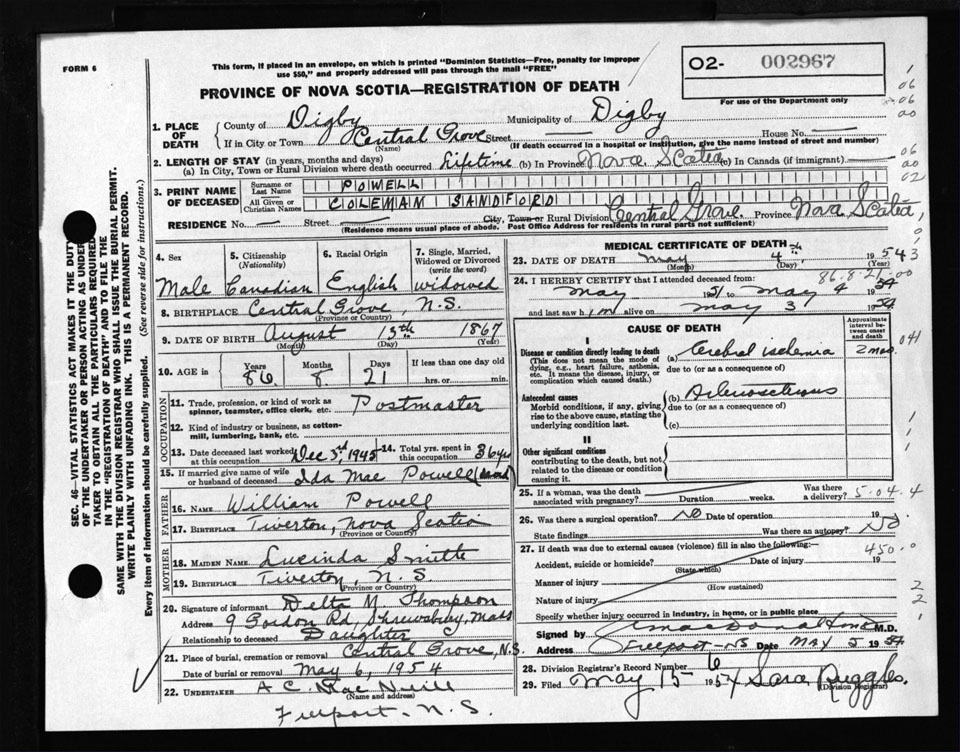 FORM 6
This form, if placed in an envelope, on which is printed "Dominion Statistics—Free, penalty for improper
use $50," and properly addressed will pass through the mail "FREE"
O2- 002967
For use of the Department only
PROVINCE OF NOVA SCOTIA—REGISTRATION OF DEATH
1. PLACE OF DEATH { County of Digby Municipality of Digby
If in City or Town Central Grove Street House No.
(Name) (If death occurred in a hospital or institution, give the name instead of street and number)
2. LENGTH OF STAY (in years, months and days)
(a) In City, Town or Rural Division where death occurred Lifetime (b) In Province Nova Scotia (c) In Canada (if immigrant)
3. PRINT NAME OF DECEASED { Surname or Last Name POWELL
All Given or Christian Names COLEMAN SANDFORD
RESIDENCE No. Street City, Town or Rural Division Central Grove. Province Nova Scotia,
(Residence means usual place of abode. Post Office Address for residents in rural parts not sufficient)
4. Sex
Male
5. Citizenship
(Nationality)
Canadian
6. Racial Origin
English
7. Single, Married,
Widowed or Divorced
(write the word)
widowed
8. BIRTHPLACE Central Grove, N.S.
(Province or Country)
9. DATE OF BIRTH August 13th 1867
(Month) (Day) (Year)
10. AGE in Years 86 Months 8 Days 21 If less than one day old
hrs. or min.
OCCUPATION
11. Trade, profession, or kind of work as
spinner, teamster, office clerk, etc. Postmaster
12. Kind of industry or business, as cotton-
mill, lumbering, bank, etc.
13. Date deceased last worked
at this occupation Dec 3rd, 1945
14. Total yrs. spent in
this occupation 36 yrs
15. If married give name of wife
or husband of deceased Ida Mae Powell
FATHER
16. NAME William Powell
17. BIRTHPLACE Tiverton, Nova Scotia
(Province or Country)
MOTHER
18. MAIDEN NAME Lucinda
19. BIRTHPLACE Tiverton, N.S
(Province or Country)
20. Signature of informant Delta M. Thompson
Address 9 Gordon Rd, Shrewsbury, Mass
Relationship to deceased Daughter
21. Place of burial, cremation or removal Central Grove, N.S.
Date of burial or removal May 6, 1954
22. UNDERTAKER A C. Mac Neill
(Name and address)
Freeport - N.S.
MEDICAL CERTIFICATE OF DEATH
23. DATE OF DEATH May 4th 1954
(Month) (Day) (Year)
86-8-21-00
24. I HEREBY CERTIFY that I attended deceased from:
May 1951 to May 4 1954
and last saw him alive on May 3 1954
CAUSE OF DEATH
Approximate
interval be-
tween onset
and death
I
Disease or condition directly leading to death
(This does not mean the mode of
dying, e.g., heart failure, asthenia,
etc. It means the disease, injury, or
complication which caused death.)
(a) Cerebral ischemia 2 mos.
due to (or as a consequence of)
Antecedent causes
Morbid conditions, if any, giving
rise to the above cause, stating the
underlying condition last.
(b)
due to (or as a consequence of)
(c)
II
Other significant conditions
contributing to the death, but not
related to the disease or condition
causing it.
25. If a woman, was the death
associated with pregnancy? Duration weeks. Was there
a delivery? 5-04.4
26. Was there a surgical operation? No Date of operation 19
State findings Was there an autopsy? No
27. If death was due to external causes (violence) fill in also the following:—
450-0
Accident, suicide or homicide? Date of injury 19
(State which)
Manner of injury
(How sustained)
Nature of injury
Specify whether injury occurred in industry, in home, or in public place
Signed by M.D.
Address Freeport - NS Date May 5 1954
28. Division Registrar's Record Number 6
29. Filed May 15 1954 Sara Ruggles.
(Division Registrar)
SEC. 46—VITAL STATISTICS ACT MAKES IT THE DUTY
OF THE UNDERTAKER OR PERSON ACTING AS UNDER-
TAKER TO OBTAIN ALL THE PARTICULARS REQUIRED
IN THE "REGISTRATION OF DEATH" AND TO FILE THE
SAME WITH THE DIVISION REGISTRAR WHO SHALL ISSUE THE BURIAL PERMIT.
WRITE PLAINLY WITH UNFADING INK. THIS IS A PERMANENT RECORD.
Every item of information should be carefully supplied. (See reverse side for instructions.)
06
06
00
06
00
02
0
43
041
2
2